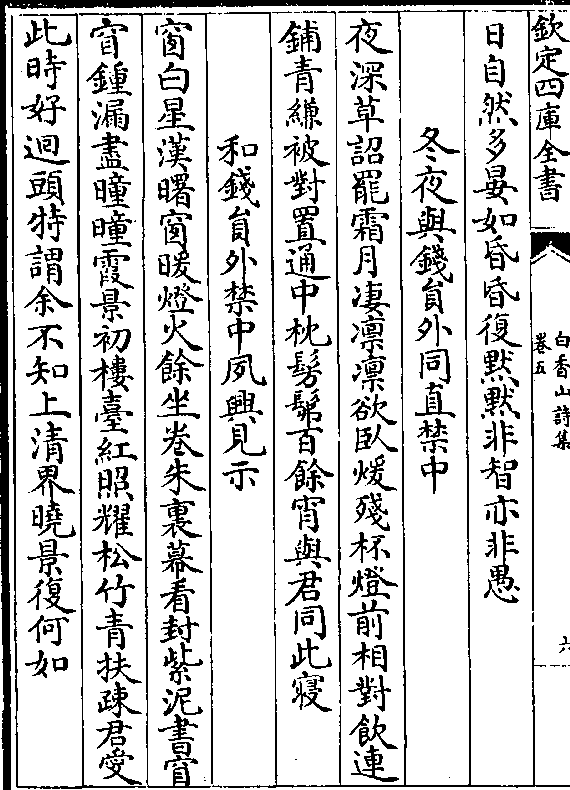 欽定四庫全書
白香山詩集
卷五
六
日自然多晏如昏昏復黙黙非智亦非愚
冬夜與錢員外同直禁中
夜深草詔罷霜月凄凛凛欲臥煖殘杯燈前相對飲連
鋪青縑被對置通中枕髣髴百餘宵與君同此寢
和錢員外禁中夙興見示
窗白星漢曙窗暖燈火餘坐卷朱裏幕看封紫泥書窅
窅鍾漏盡曈曈霞景初樓臺紅照耀松竹青扶疎君愛
此時好迴頭特謂余不知上清界曉景復何如